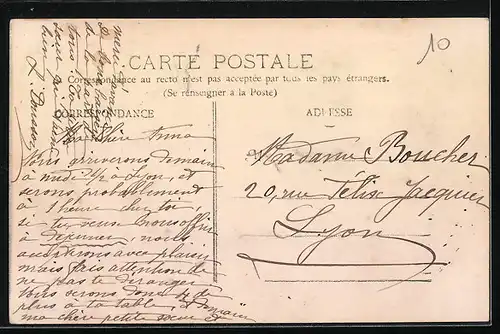 10
CARTE POSTALE
Correspondance au recto n'est pas acceptée par tous les pays étrangers.
(Se renseigner à la Poste)
CORRESPONDANCE
ADRESSE
Ma chère Anna
Nous arriverons demain
à midi ½ à Lyon, et
serons probablement
à 1 heure chez toi,
si tu veux nous offrir
à déjeuner, nous
accepterons avec plaisir
mais fais attention de
ne pas te déranger
Nous serons de
plus à ta table. Demain
ma chère petite sœur et
merci d'avance
de la
Madame Boucher
20, rue Félix Jacquier
Lyon